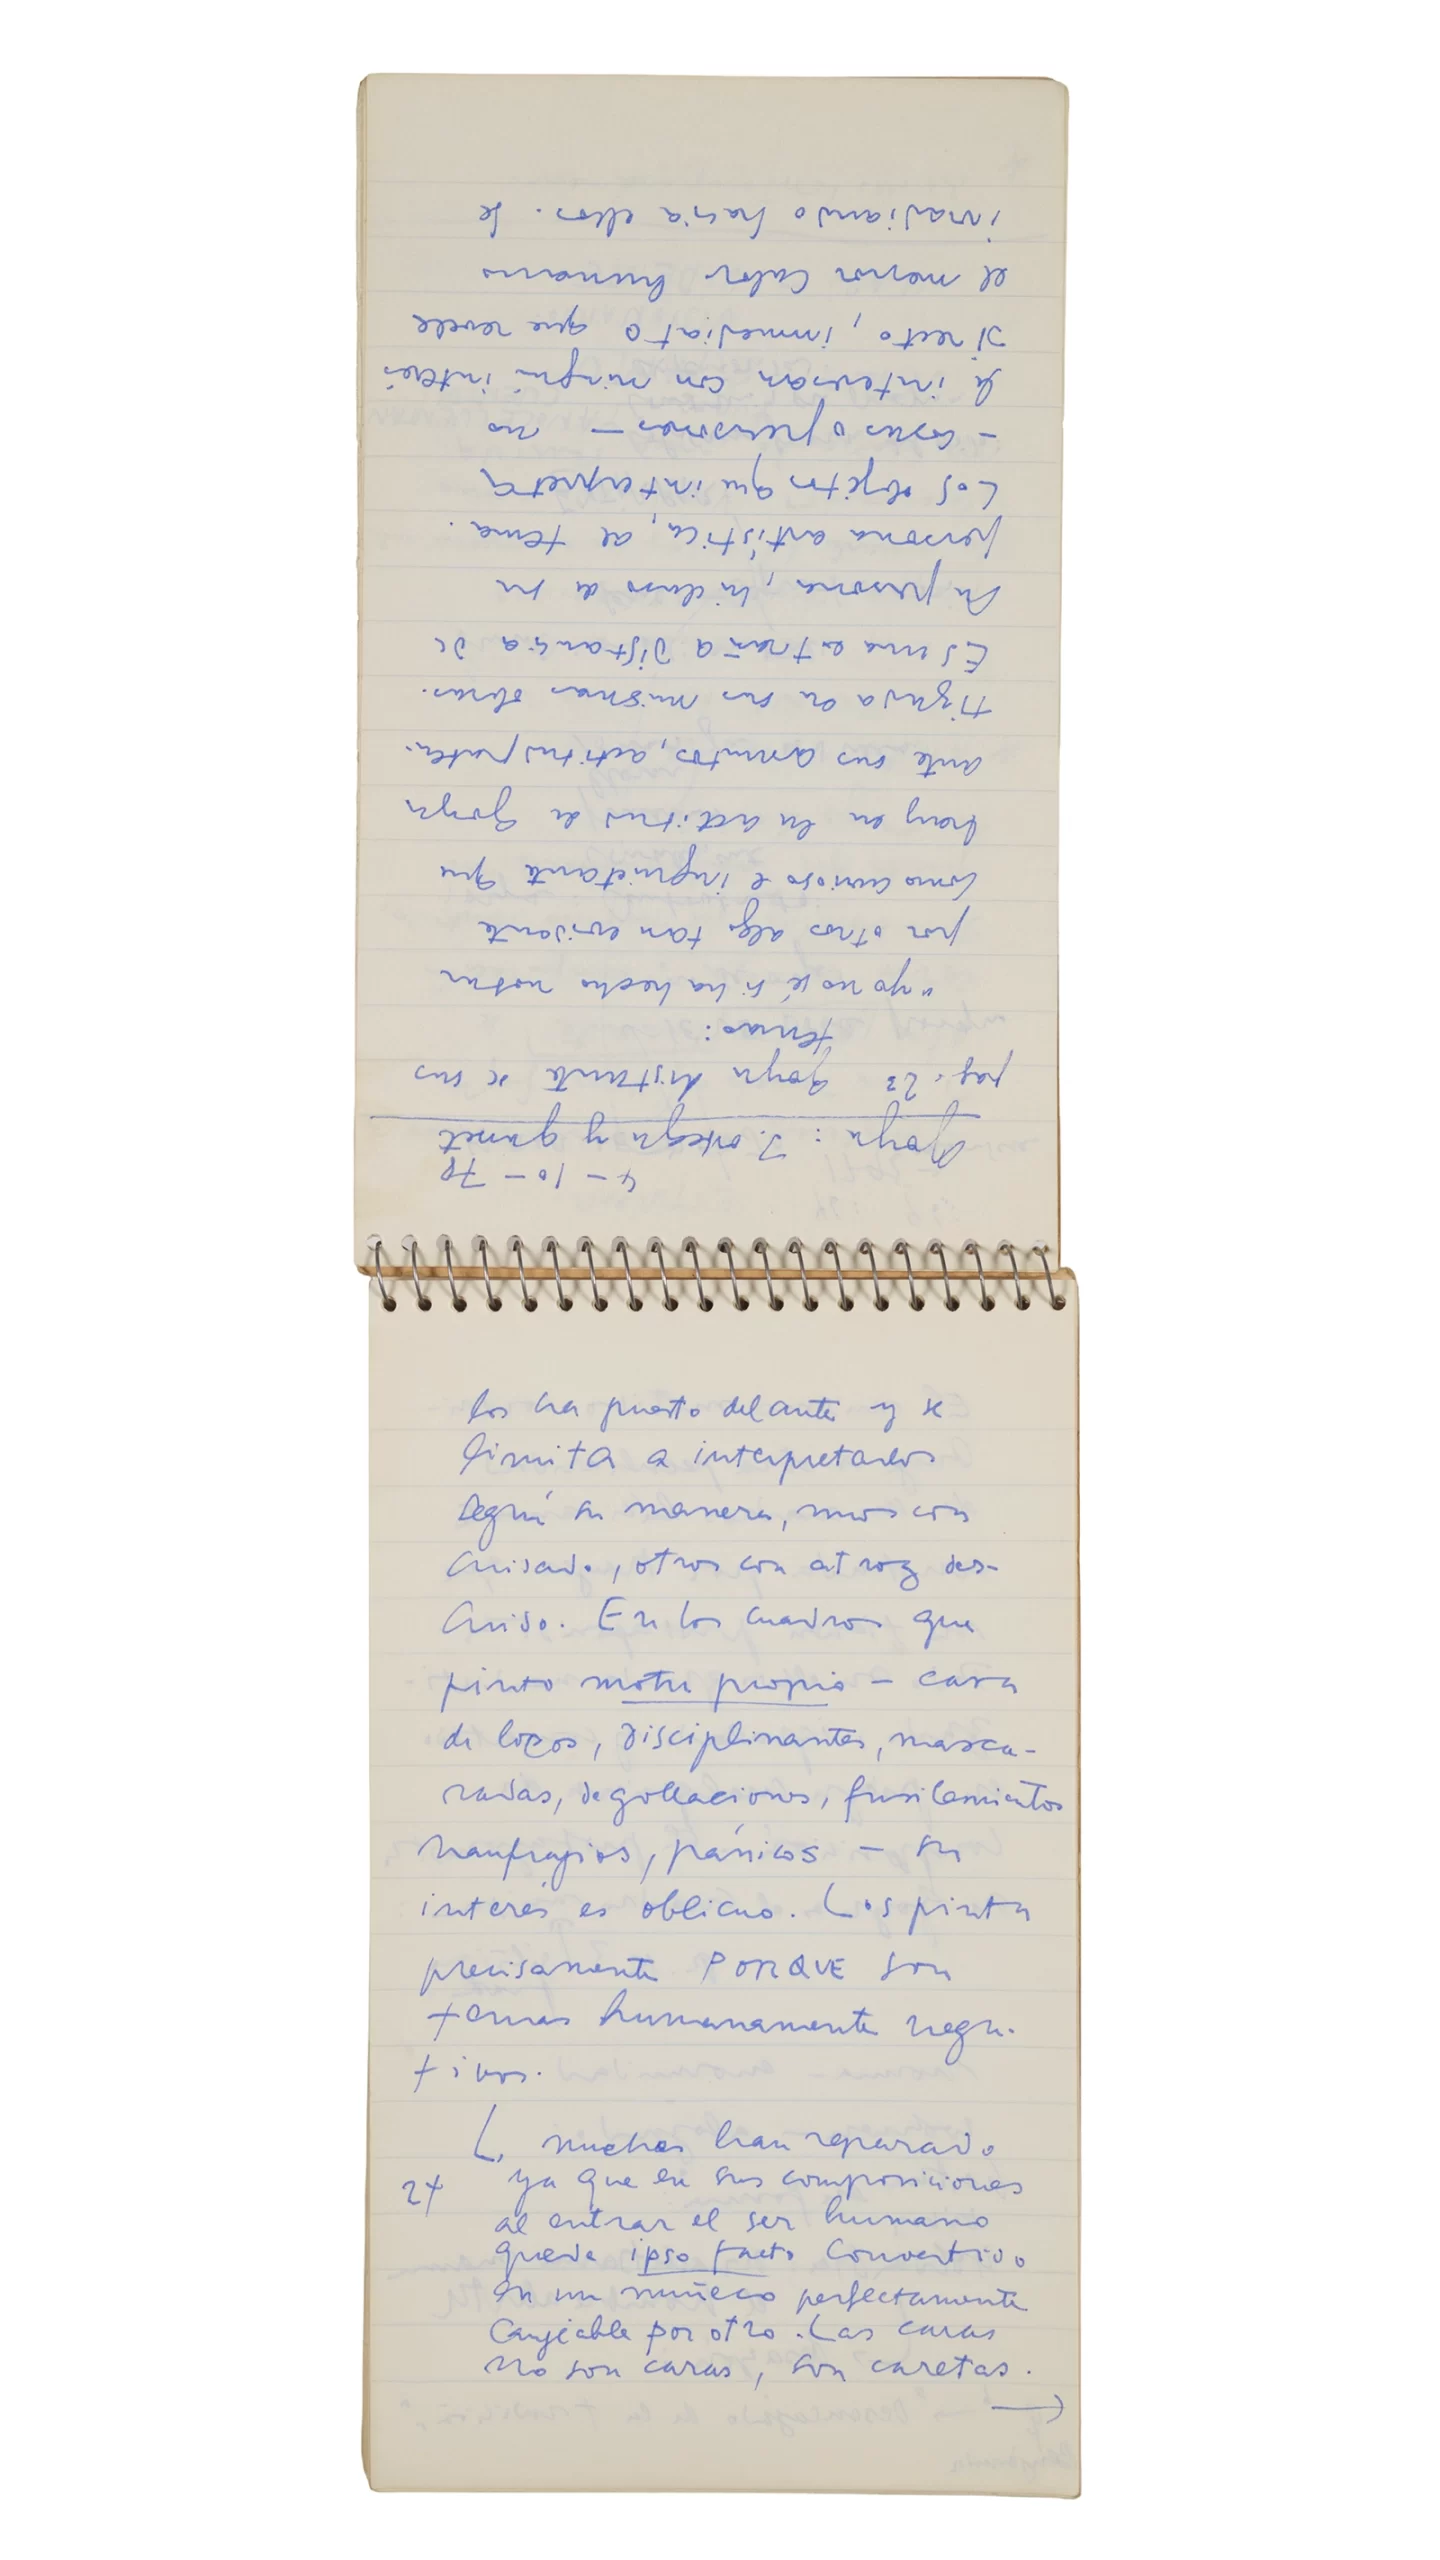 4-10-78
Goya: J. ortega y gasset
pag. 23 Goya distante de sus
temas:
"yo no sé si ha hecho notar
por otros algo tan evidente
como curioso e inquietante que
hay en la actitud de Goya
ante sus asuntos, actitud paten-
tizada en sus mismas obras.
Es una extraña distancia de
su persona, incluso de su
persona artística, al tema.
Los objetos que interpreta
- cosas o personas - no
le interesan con ningún interés
directo, inmediato que revele
el menor calor humano
irradiando hacia ellos. Se
los ha puesto delante y se
limita a interpretarlos
según su manera, unos con
cuidado, otros con atroz des-
cuido. En los cuadros que
pinto motu propio - casa
de locos, disciplinantes, masca-
radas, degollaciones, fusilamientos
naufragios, pánicos - su
interés es oblicuo. Los pinta
precisamente PORQUE son
temas humanamente nega-
tivos.
muchos han reparado
24 ya que en sus composiciones
al entrar el ser humano
queda ipso facto convertido
en un muñeco perfectamente
canjeable por otro. Las caras
no son caras, son caretas.
→